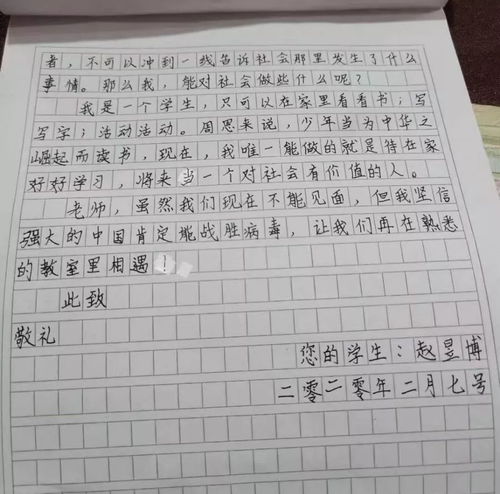 者，不可以冲到一线告诉社会那里发生了什么
事情。那么我，能对社会做些什么呢？
我是一个学生，只可以在家里看看书；写
写字；活动活动。周恩来说，少年当为中华之
崛起而读书，现在，我唯一能做的就是待在家
好好学习，将来当一个对社会有价值的人。
老师，虽然我们现在不能见面，但我坚信
强大的中国肯定能战胜病毒，让我们再在熟悉
的教室里相遇！
此致
敬礼
您的学生：赵昱博
二零二零年二月七号